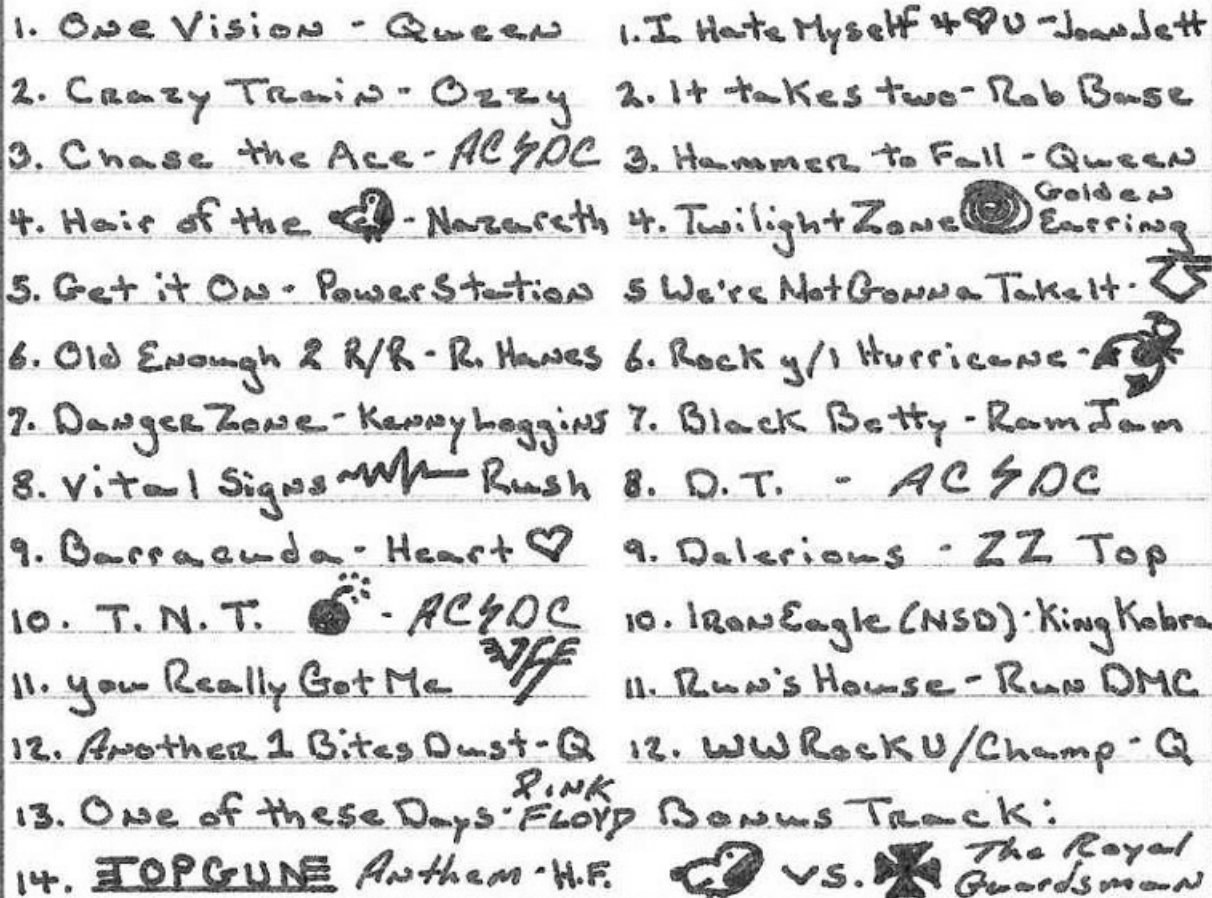 1. One Vision - Queen
2. Crazy Train - Ozzy
3. Chase the Ace - AC⚡DC
4. Hair of the - Nazareth
5. Get it On - Power Station
6. Old Enough 2 R/R - R. Hanes
7. Danger Zone - Kenny Loggins
8. Vital Signs Rush
9. Barracuda - Heart ♡
10. T.N.T. - AC⚡DC
11. you Really Got Me
12. Another 1 Bites Dust - Q
13. One of these Days - PINK FLOYD
14. TOPGUN Anthem - H.F.
1. I Hate Myself 4 ♡ U - Joan Jett
2. It takes two - Rob Base
3. Hammer to Fall - Queen
4. Twilight Zone Golden Earring
5 We're Not Gonna Take It -
6. Rock y/l Hurricane -
7. Black Betty - Ram Jam
8. D.T. - AC⚡DC
9. Delerious - ZZ Top
10. Iron Eagle (NSD) - King Kobra
11. Run's House - Run DMC
12. WW Rock U/Champ - Q
Bonus Track:
vs. The Royal Guardsman